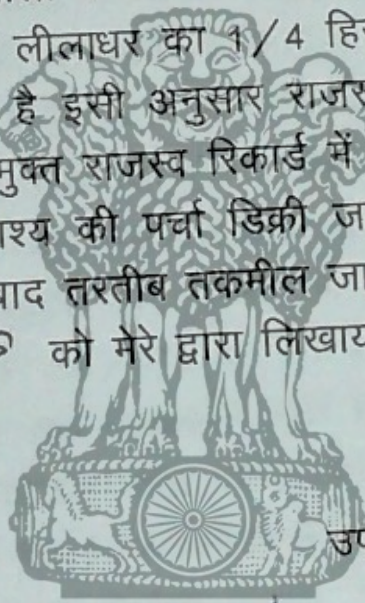 लीलाधर का 1/4 हि
है इसी अनुसार राजस
मुक्त राजस्व रिकार्ड में
श्य की पर्चा डिक्री ज
ाद तरतीब तकमील जा
को मेरे द्वारा लिखाय
उप